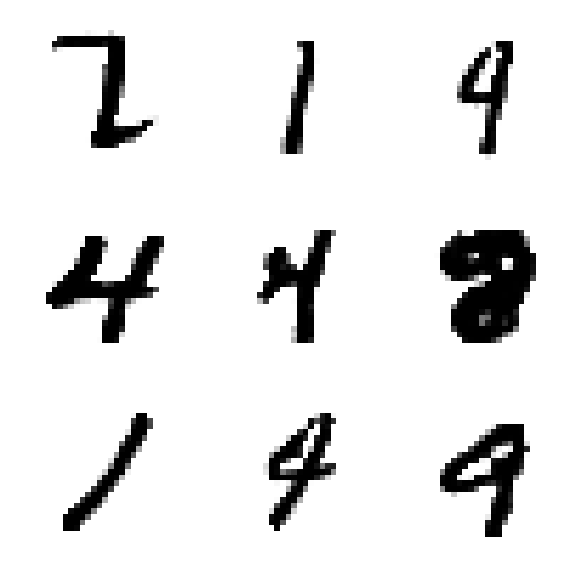 2 1 9
4 4 8
1 4 9